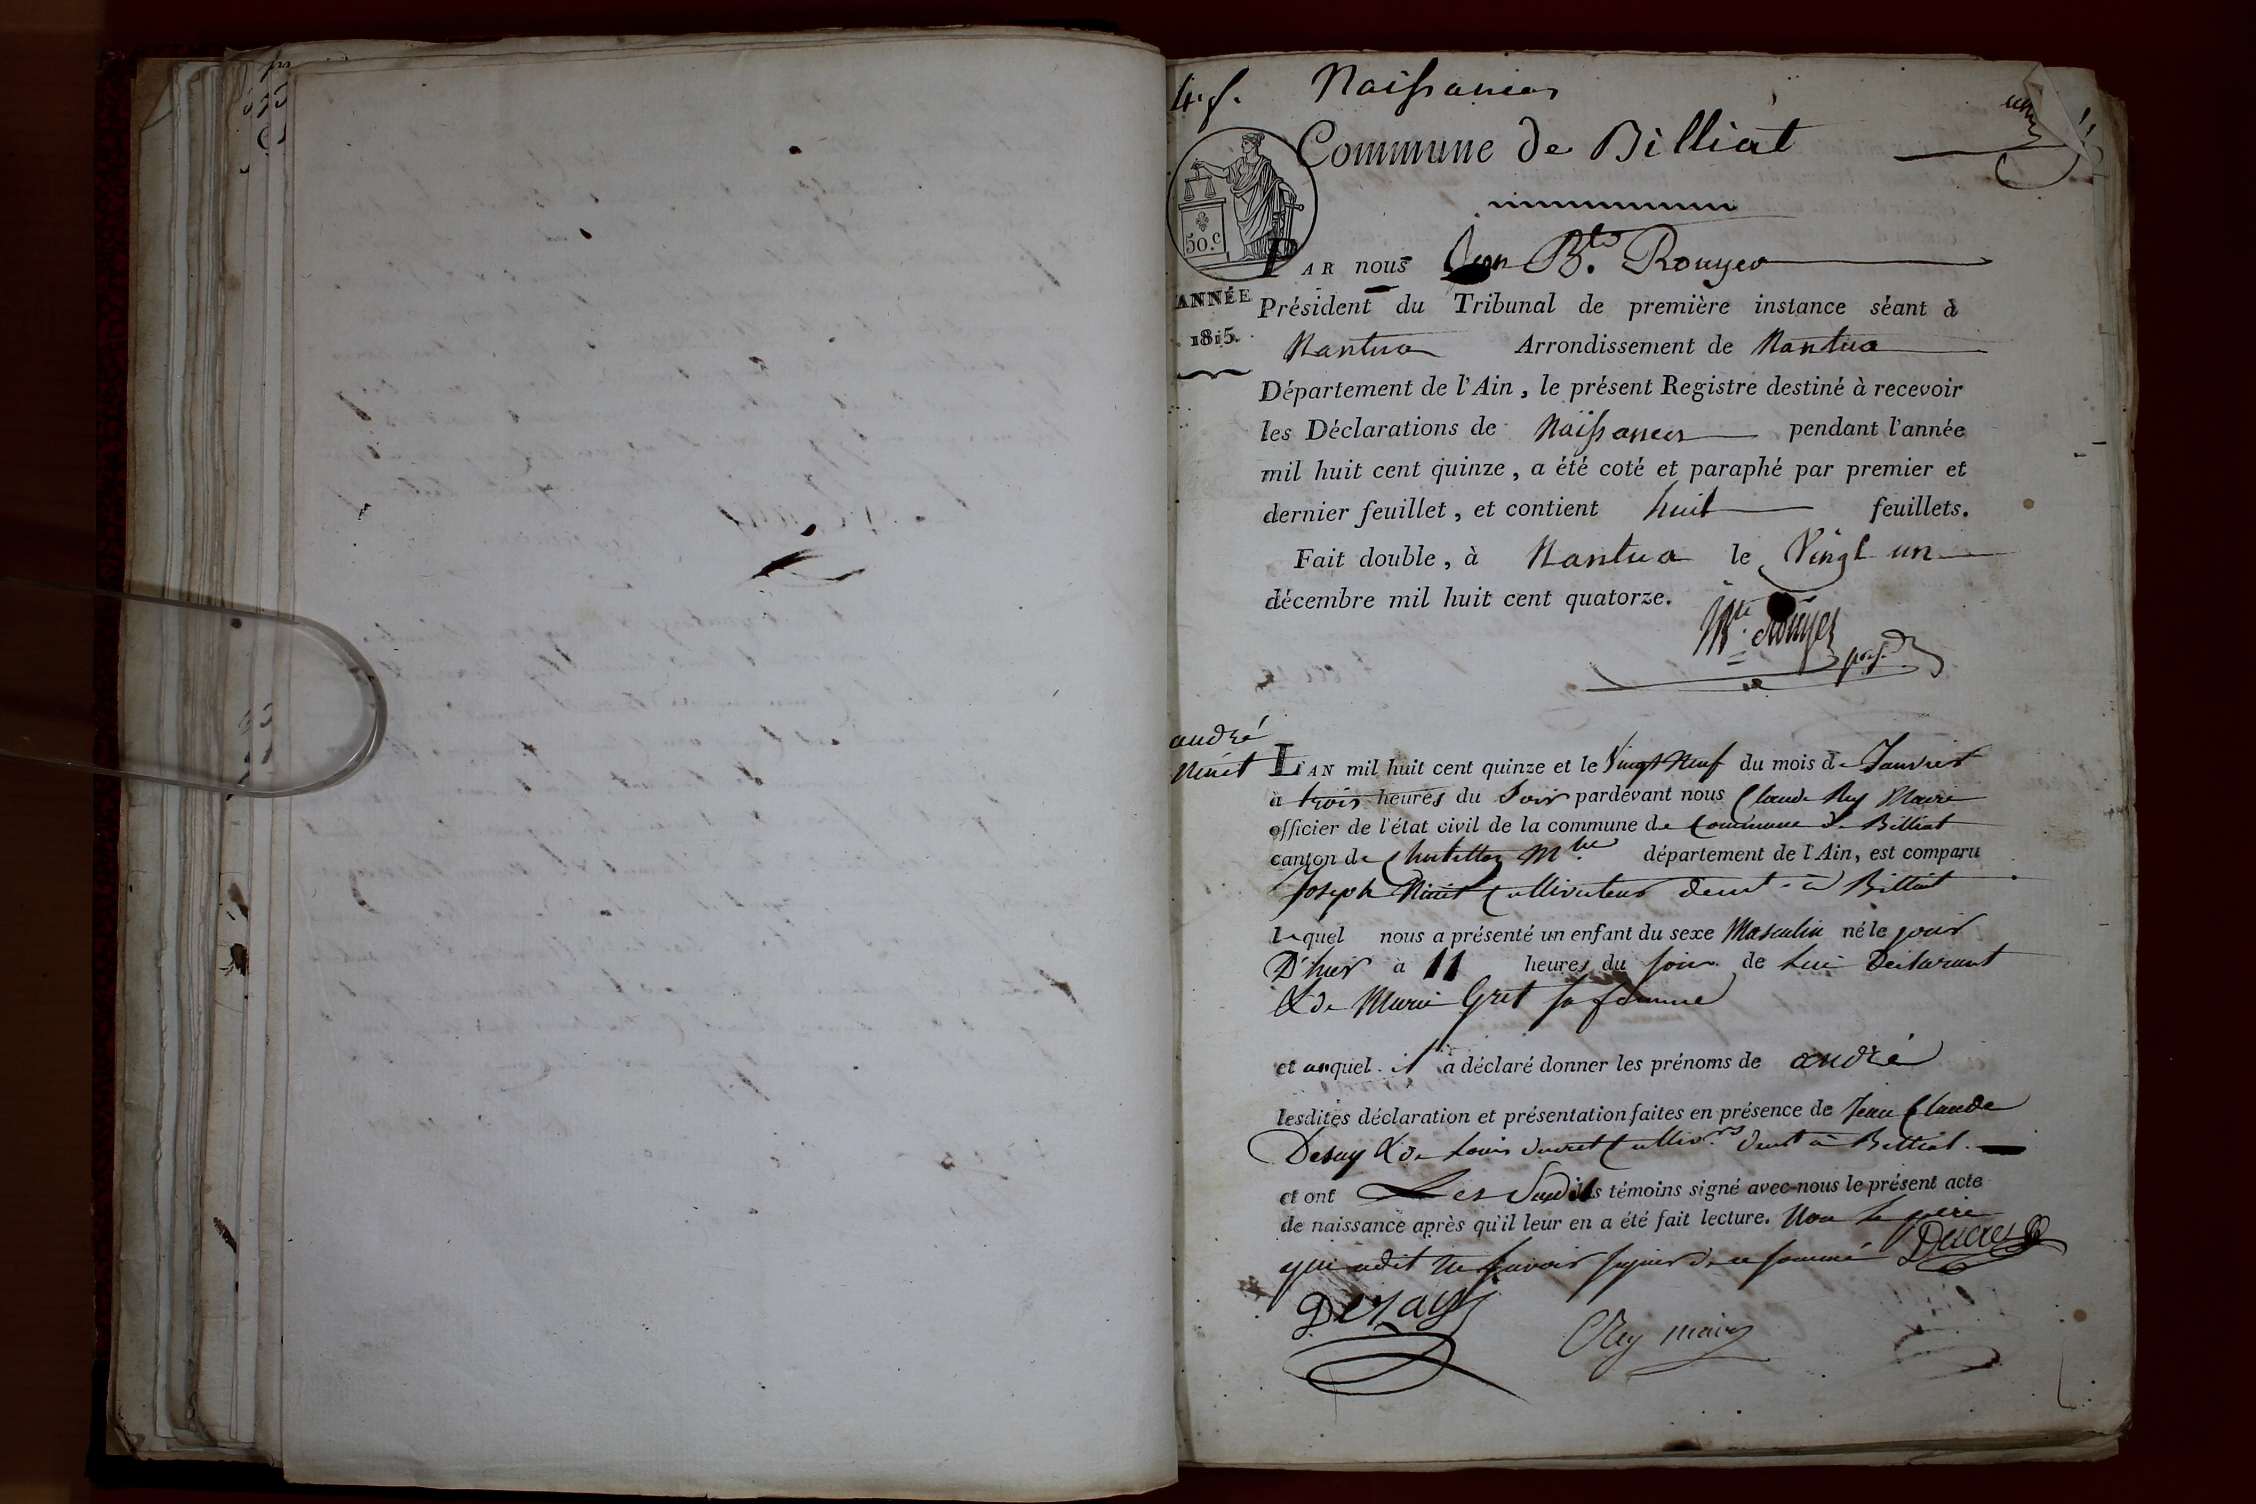 4. f. Naissances
un
Commune de Billiat
50.c
PAR nous Jean Bte. Rouyer
ANNÉE
Président du Tribunal de première instance séant à
1815.
Nantua Arrondissement de Nantua
Département de l'Ain, le présent Registre destiné à recevoir
les Déclarations de Naissances pendant l'année
mil huit cent quinze, a été coté et paraphé par premier et
dernier feuillet, et contient huit feuillets.
Fait double, à Nantua le Vingt un
décembre mil huit cent quatorze.
Bte. Rouyer
andré
Ninet
L'AN mil huit cent quinze et le Vingt Neuf du mois de Janvier
à trois heures du Soir pardevant nous Claude Rey Maire
officier de l'état civil de la commune de Commune de Billiat
canton de Chatillon Mlle département de l'Ain, est comparu
Joseph Ninet Cultivateur demt. à Billiat
lequel nous a présenté un enfant du sexe Masculin né le jour
D'hier à 11 heures du soir de Lui Déclarant
& de Marie Gret sa femme
et auquel il a déclaré donner les prénoms de andré
lesdites déclaration et présentation faites en présence de Jean Claude
Desay & de Louis Ducret Cultivrs demt à Billiat
et ont Les Susdits témoins signé avec nous le présent acte
de naissance après qu'il leur en a été fait lecture. Non le père
qui a dit ne savoir signer de ce sommé Ducret
Desay
CRey maire